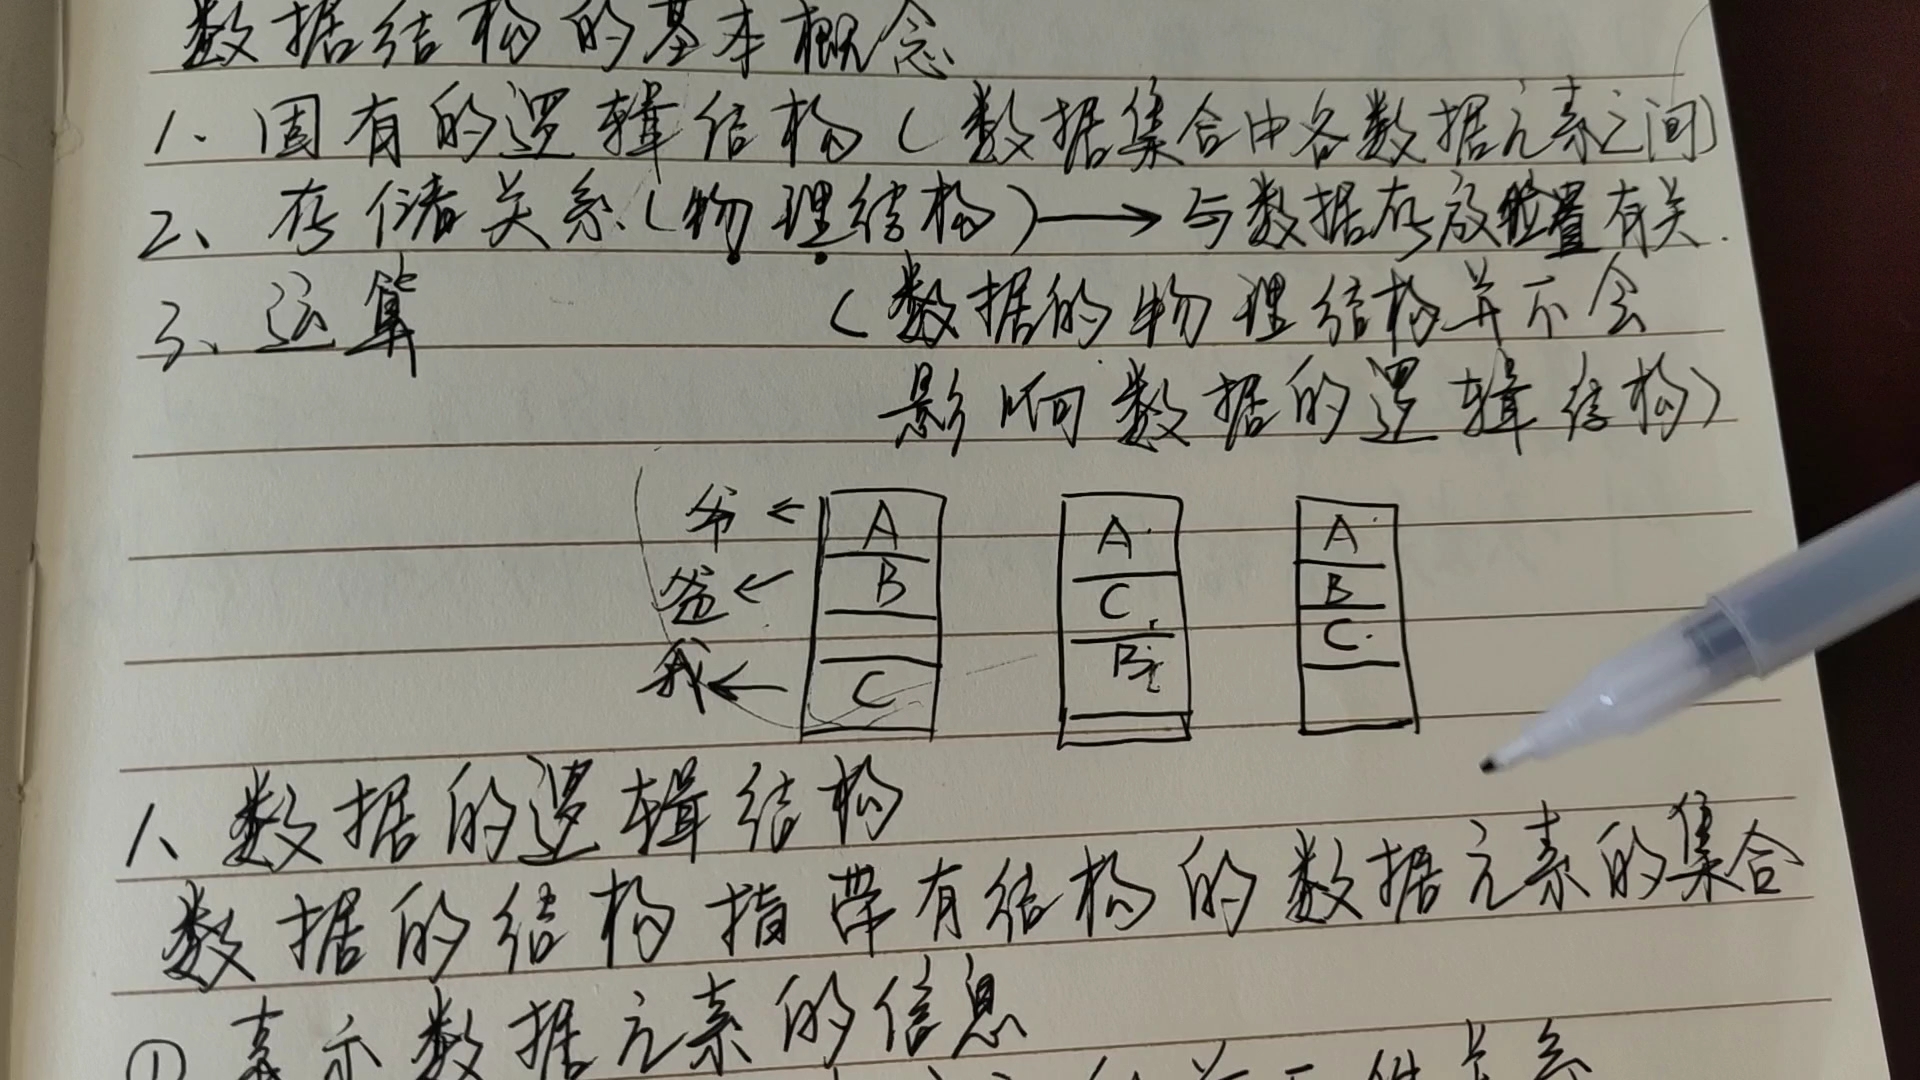 数据结构的基本概念
1、固有的逻辑结构(数据集合中各数据元素之间)
2、存储关系(物理结构)→与数据存放位置有关.
3、运算 (数据的物理结构并不会
影响数据的逻辑结构)
爷← A A A
爸← B C B
我← C B C
1、数据的逻辑结构
数据的结构指带有结构的数据元素的集合
① 表示数据元素的信息